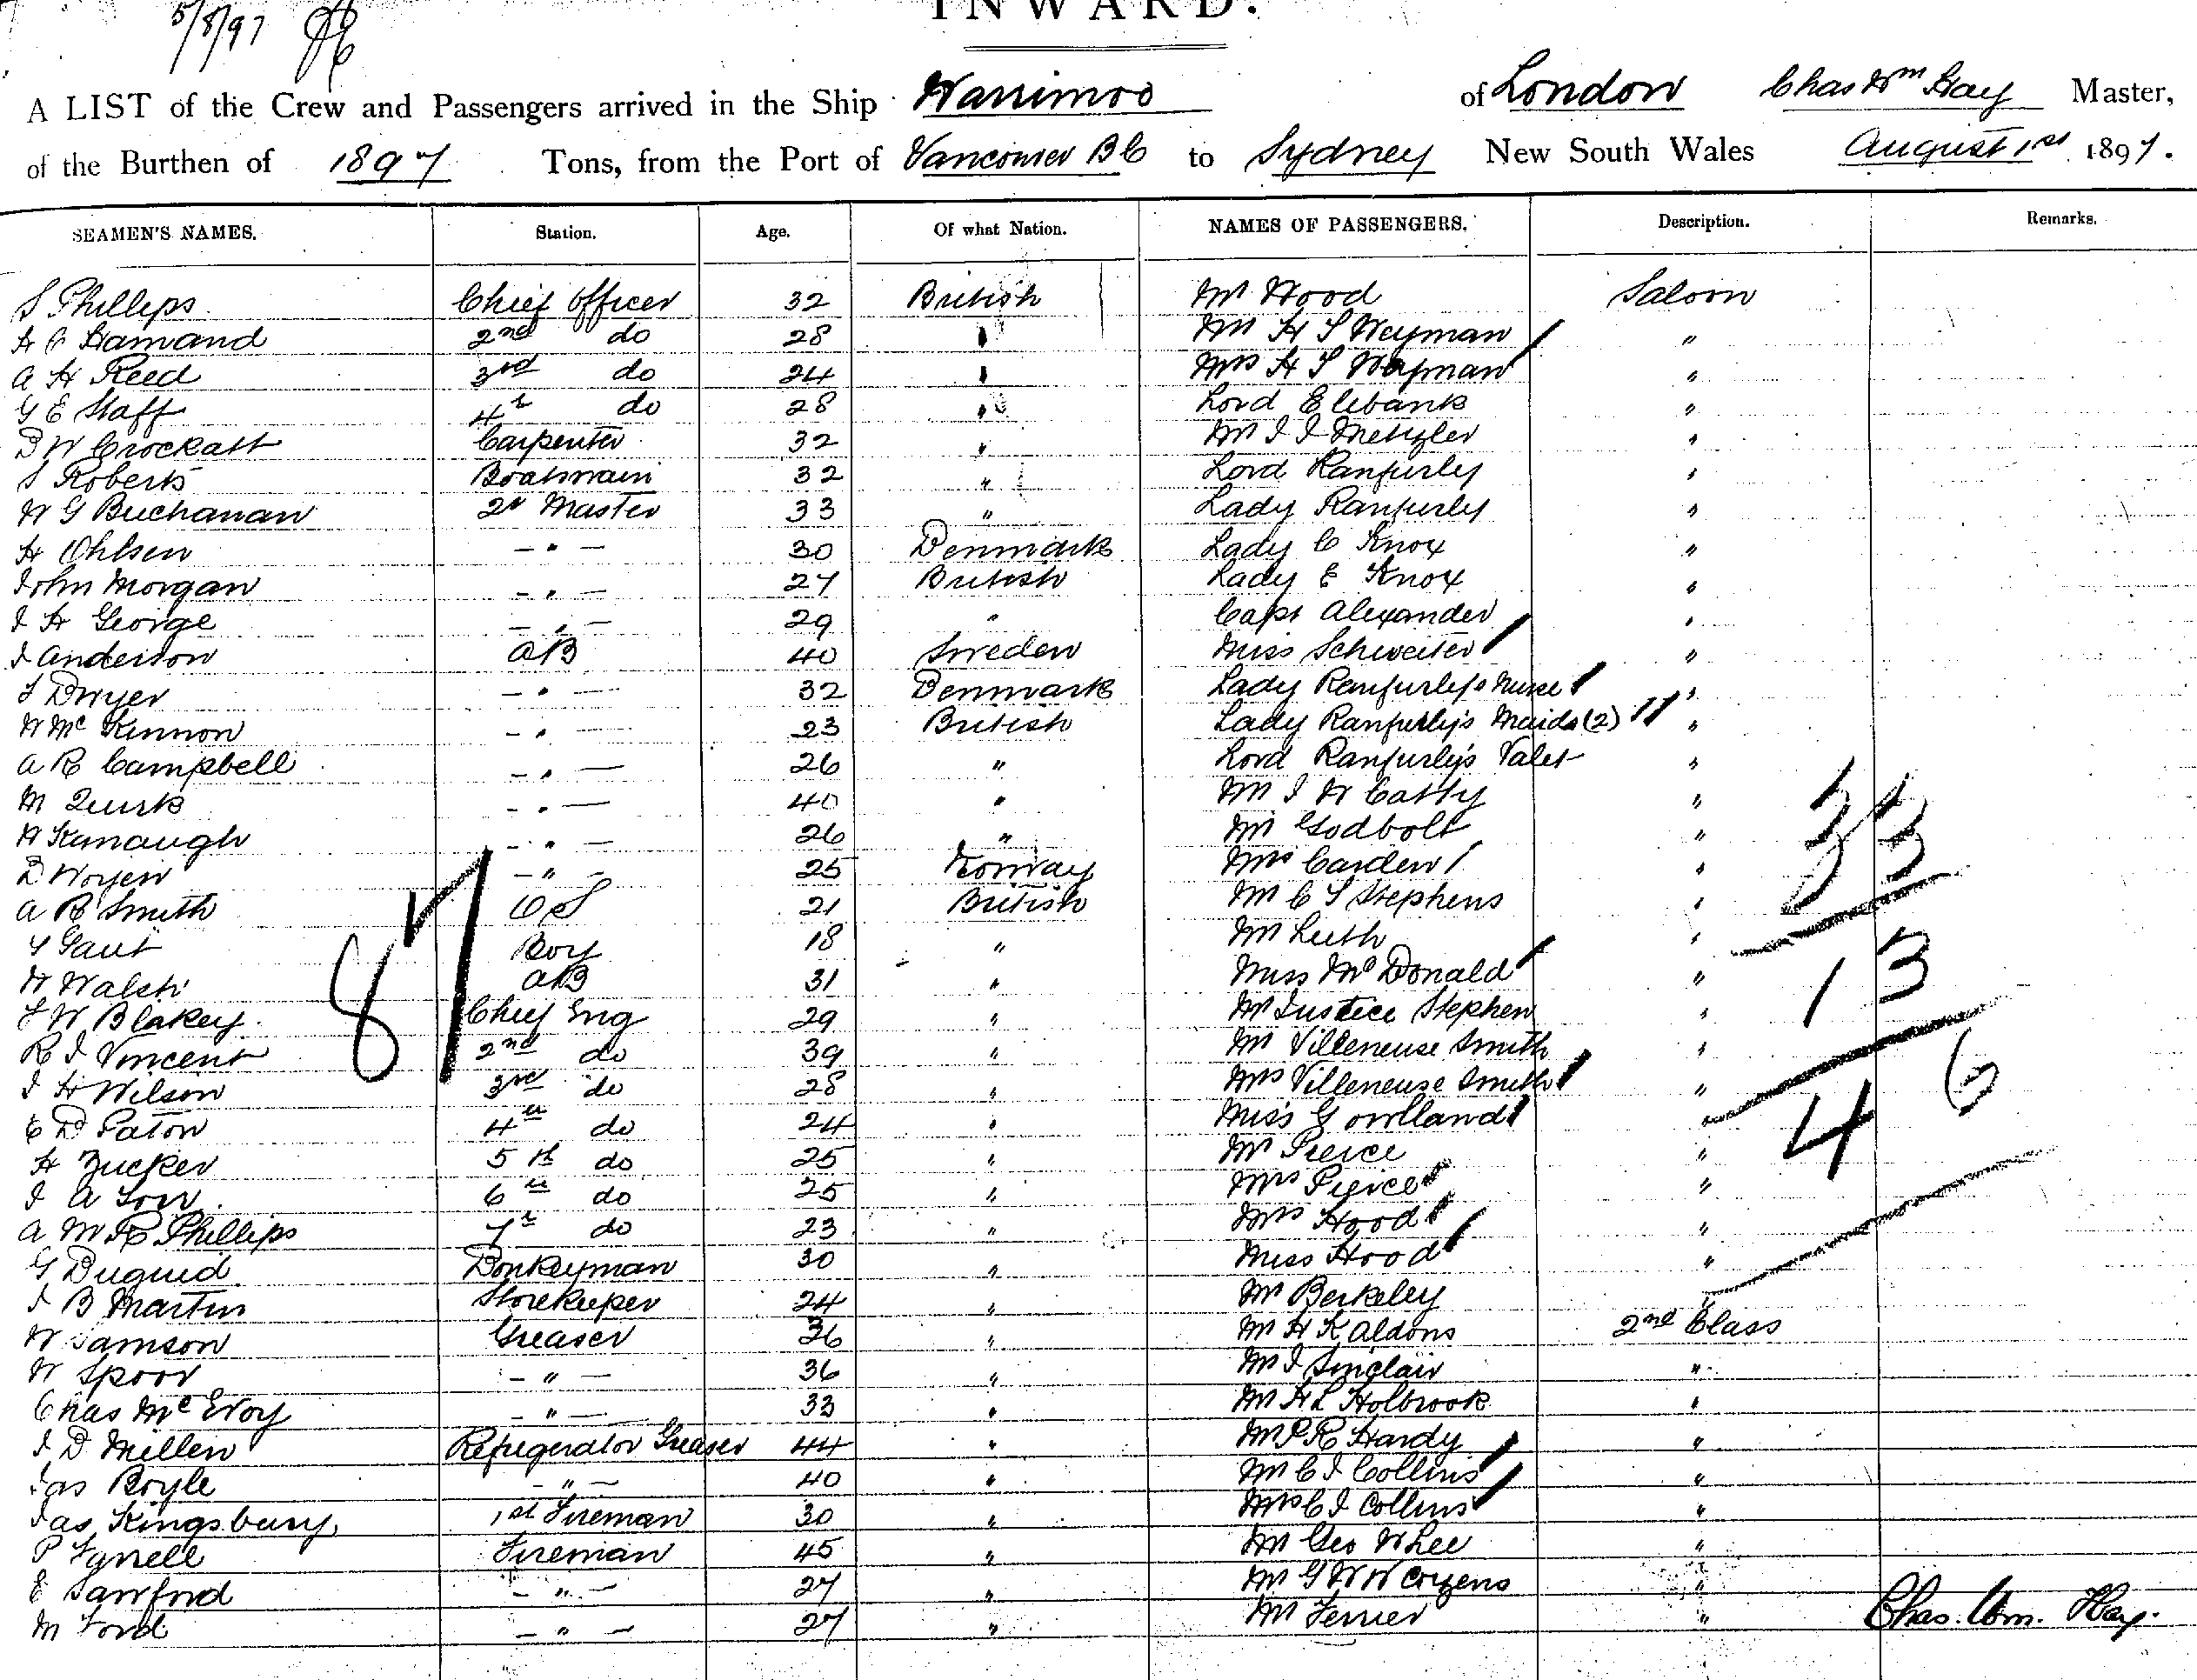 5/8/97
INWARD.
A LIST of the Crew and Passengers arrived in the Ship Warrimoo of London Chas Wm Hay Master,
of the Burthen of 1897 Tons, from the Port of Vancouver BC to Sydney New South Wales August 1st 1897.
SEAMEN'S NAMES. Station. Age. Of what Nation. NAMES OF PASSENGERS. Description. Remarks.
S Phillips Chief Officer 32 British Mr Hood Saloon
A C Hamand 2nd do 28 " Mr H S Weyman "
A H Reed 3rd do 24 " Mrs H S Weyman "
G E Staff 4th do 28 " Lord Elibank "
D W Crockatt Carpenter 32 " Mr J J Metzler "
S Roberts Boatswain 32 " Lord Ranfurly "
W G Buchanan 2r Master 33 " Lady Ranfurly "
H Ohlsen - " - 30 Denmark Lady C Knox "
John Morgan - " - 27 British Lady E Knox "
J H George - " - 29 " Capt Alexander "
J Anderson AB 40 Sweden Miss Schweiter "
J Dwyer - " - 32 Denmark Lady Ranfurly's Nurse "
W McKinnon - " - 23 British Lady Ranfurly's Maids (2) "
A R Campbell - " - 26 " Lord Ranfurly's Valet "
M Quirk - " - 40 " Mr J W Catty "
H Kanaugh - " - 26 " Mr Godbolt "
D Woyen - " - 25 Norway Mrs Carden "
A R Smith OS 21 British Mr C S Stephens "
Y Gaut Boy 18 " Mr Luth "
W Walsh AB 31 " Miss McDonald "
J W Blakey Chief Eng 29 " Mr Justice Stephen "
R J Vincent 2nd do 39 " Mr Villeneuse Smith "
J H Wilson 3rd do 28 " Mrs Villeneuse Smith "
C D Paton 4th do 24 " Miss Gowlland "
H Zucker 5th do 25 " Mr Pierce "
J A Low 6th do 25 " Mrs Pierce "
A M R Phillips 7th do 23 " Mrs Hood "
G Duguid Donkeyman 30 " Miss Hood "
J B Martin Storekeeper 24 " Mr Berkeley "
W Samson Greaser 36 " Mr H K Aldons 2nd Class
W Spoor - " - 36 " Mr J Sinclair "
Chas McEvoy - " - 33 " Mr H L Holbrook "
J D Millen Refrigerator Greaser 44 " Mr P R Hardy "
Jas Boyle - " - 40 " Mr C J Collins "
Jas Kingsbury 1st Fireman 30 " Mrs C J Collins "
P Tyrrell Fireman 45 " Mr Geo W Lee "
E Sawford - " - 27 " Mr G W W Cozens "
M Ford - " - 27 " Mr Ferrier " Chas. Wm. Hay.
87
33
13
46